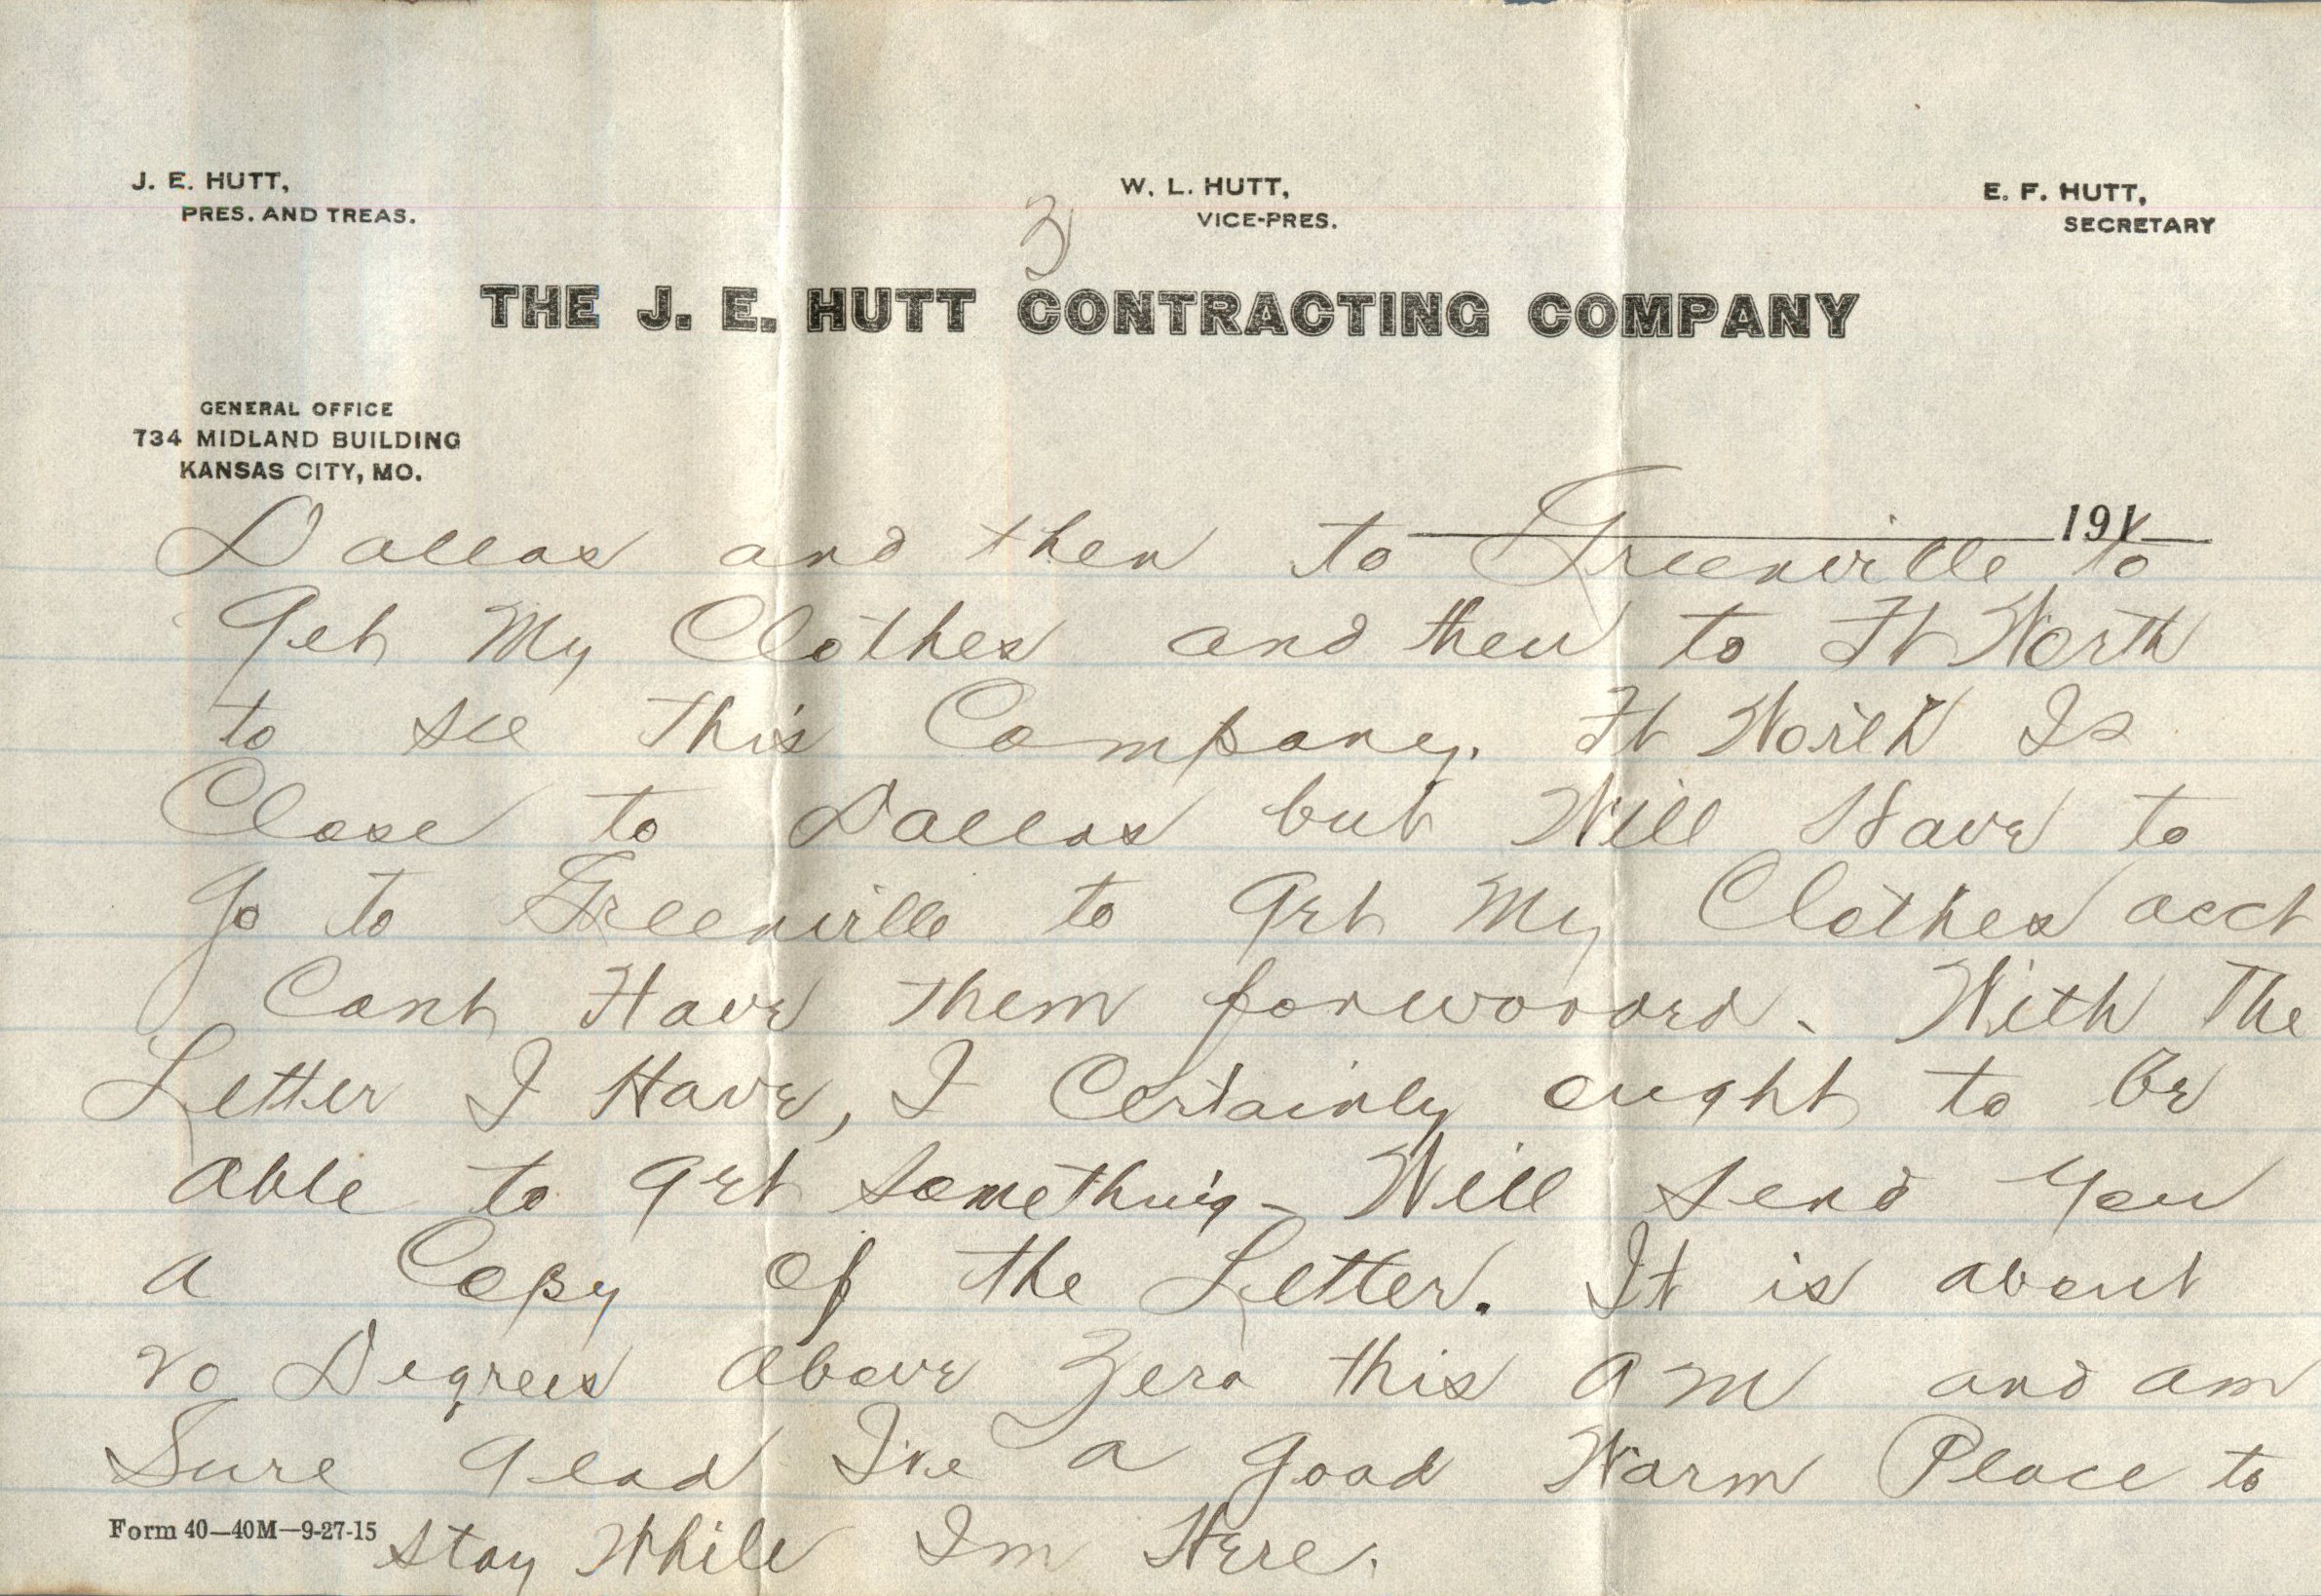 J. E. HUTT,
PRES. AND TREAS.
W. L. HUTT,
VICE-PRES.
E. F. HUTT,
SECRETARY
3
THE J. E. HUTT CONTRACTING COMPANY
GENERAL OFFICE
734 MIDLAND BUILDING
KANSAS CITY, MO.
191
Dallas and then to Greenville to
Get My Clothes and then to Ft Worth
to see this Company. Ft Worth Is
Close to Dallas but Will Have to
go to Greenville to Get My Clothes acct
Cant Have them forwarded. With The
Letter I Have, I Certainly ought to Be
able to get something - Will send you
a Copy of the Letter. It is about
20 Degrees above Zero this AM and am
Sure glad I've a good Warm Place to
stay While Im Here.
Form 40—40M—9-27-15